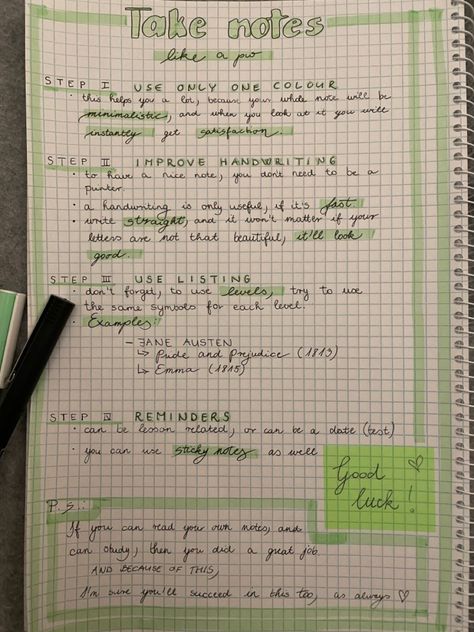 Take notes
like a pro
STEP I USE ONLY ONE COLOUR
• this helps you a lot, because your whole note will be
minimalistic, and when you look at it you will
instantly get satisfaction.
STEP II IMPROVE HANDWRITING
• to have a nice note, you don't need to be a
printer.
• a handwriting is only useful, if it's fast.
• write straight, and it won't matter if your
letters are not that beautiful, it'll look
good.
STEP III USE LISTING
• don't forget, to use levels, try to use
the same symbols for each level.
• Examples:
– JANE AUSTEN
↳ Pride and Prejudice (1813)
↳ Emma (1815)
STEP IV REMINDERS
• can be lesson related, or can be a date (test)
• you can use sticky notes as well
Good ♡
luck!
P.S.:
If you can read your own notes, and
can study, then you did a great job.
AND BECAUSE OF THIS,
I'm sure you'll succeed in this too, as always ♡